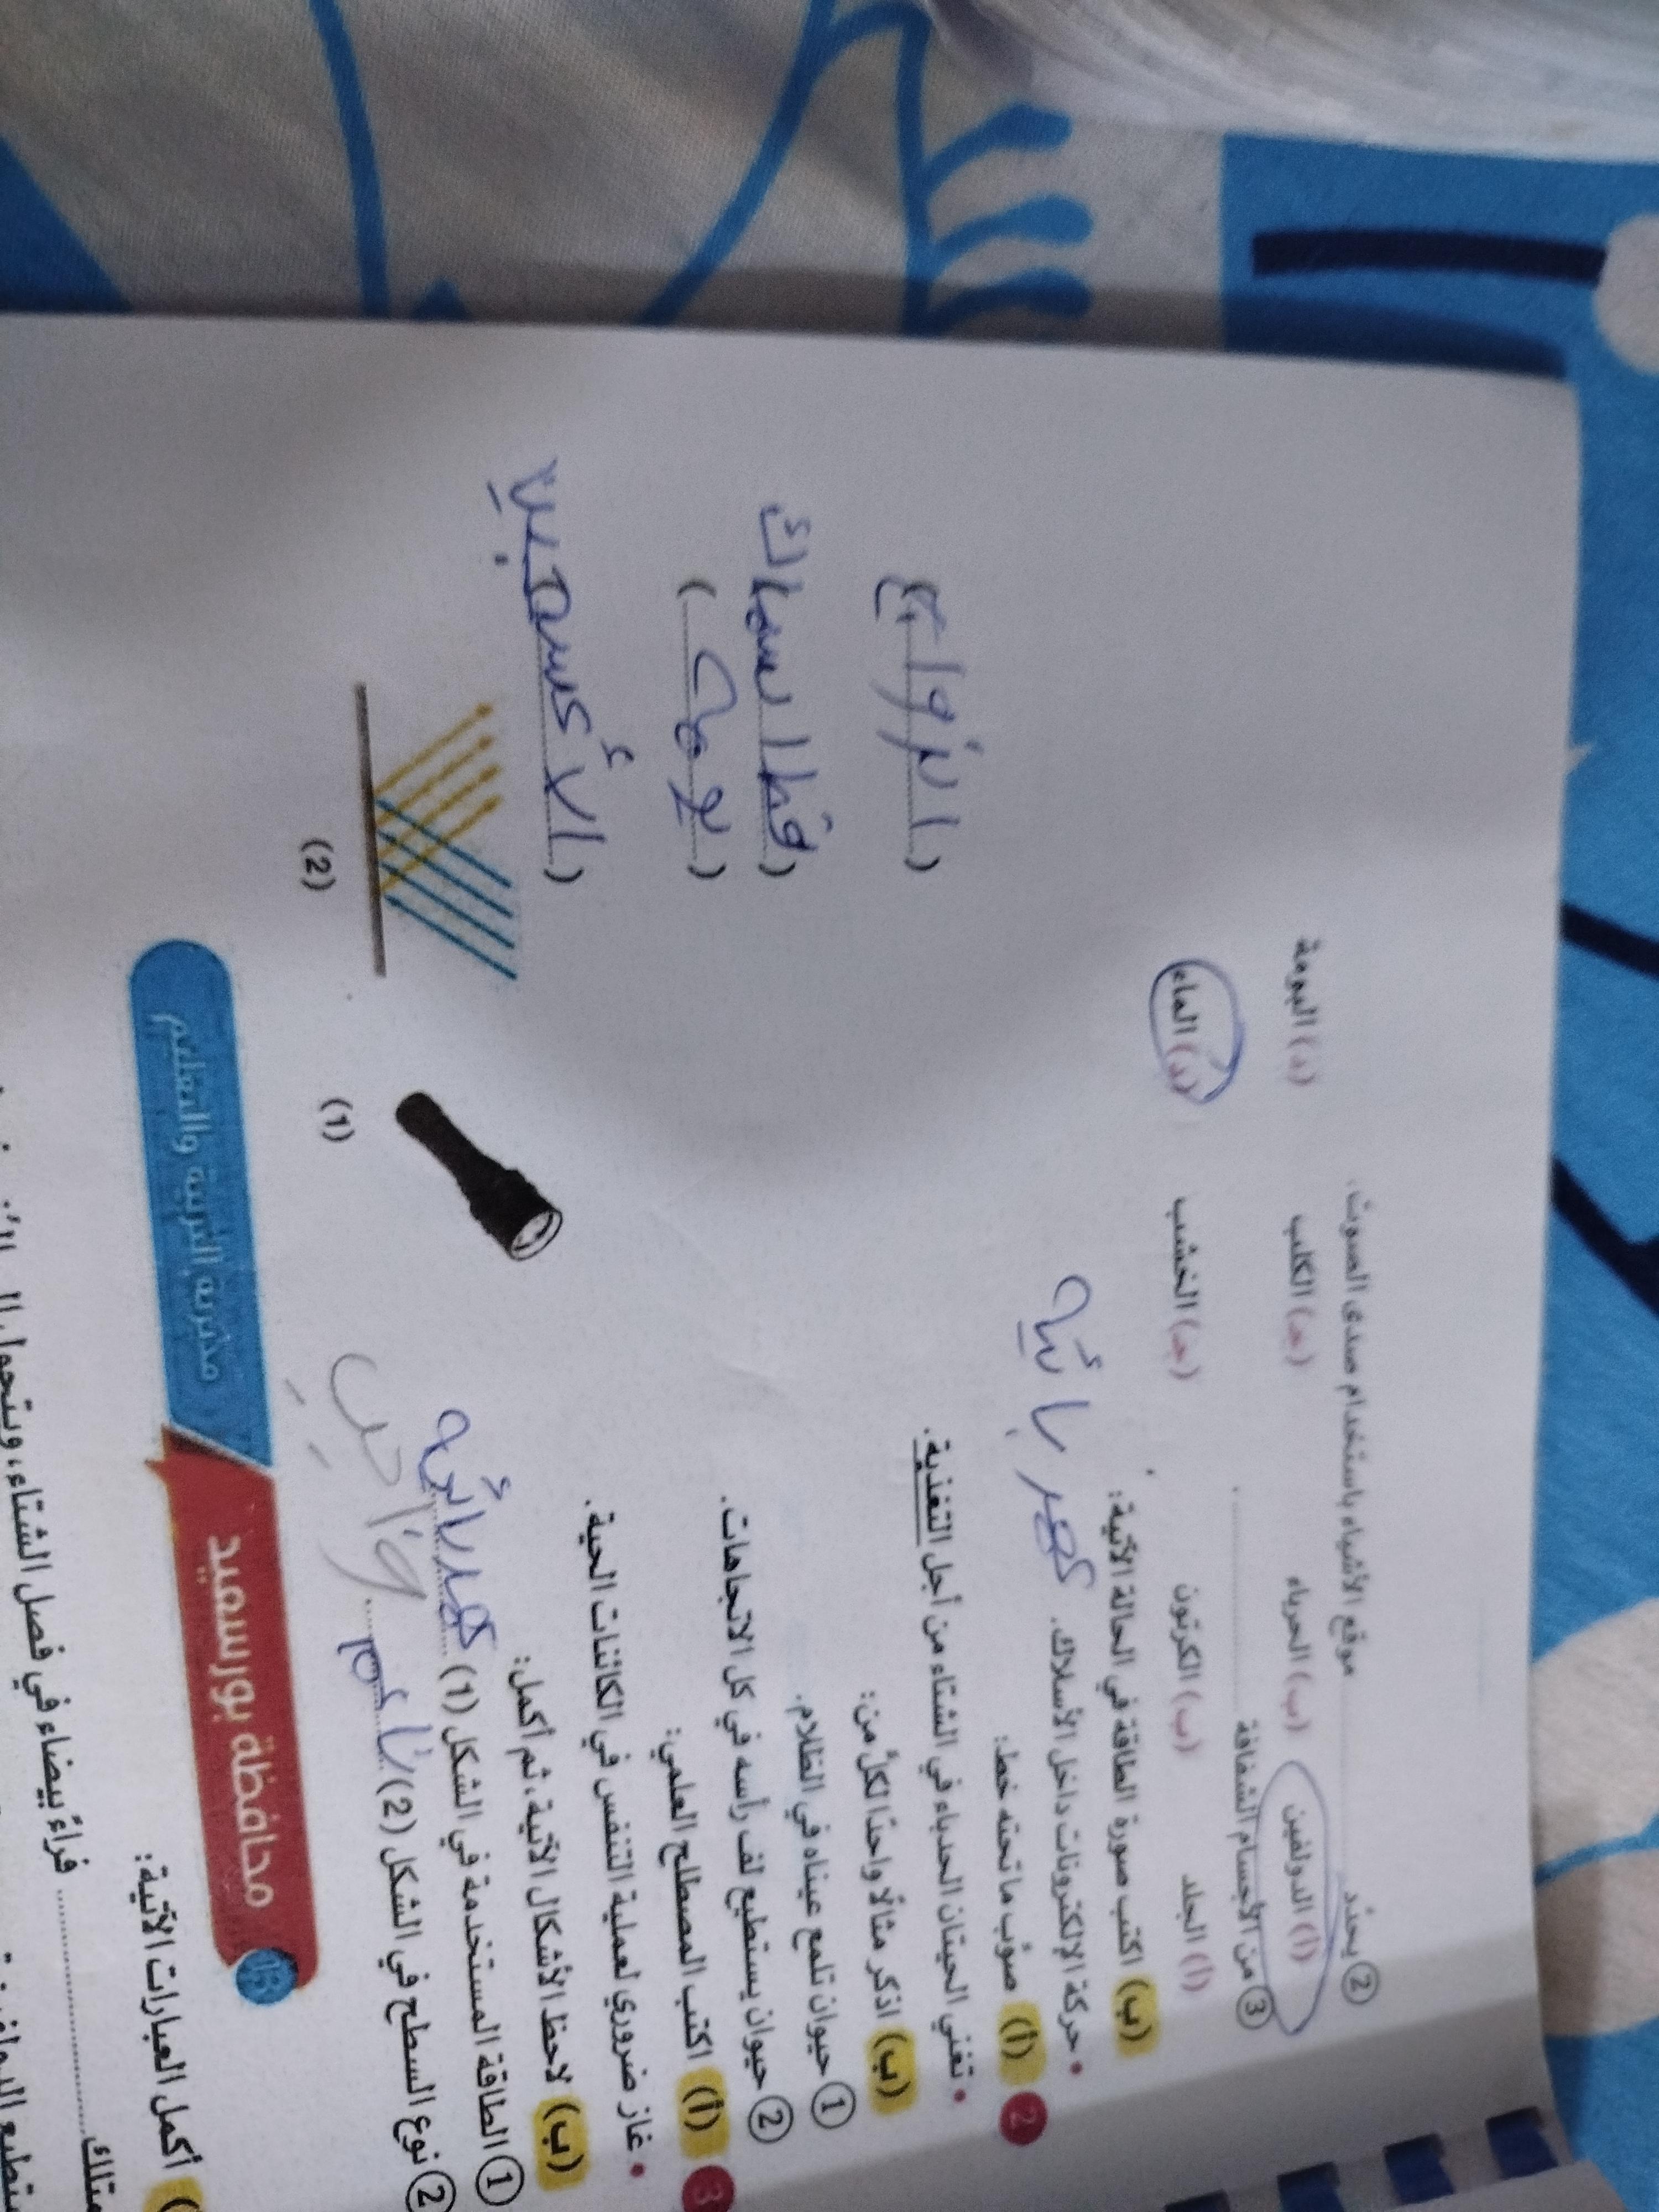 ② يحدد ............ موقع الأشياء باستخدام صدى الصوت.
(أ) الدولفين (ب) الحرباء (جـ) الكلب (د) البومة
③ من الأجسام الشفافة ............ .
(أ) الجلد (ب) الكرتون (جـ) الخشب (د) الماء
(ب) اكتب صورة الطاقة في الحالة الآتية:
• حركة الإلكترونات داخل الأسلاك. كهربائيه
2 (أ) صوّب ما تحته خط:
• تغني الحيتان الحدباء في الشتاء من أجل التغذية. (الزواج)
(ب) اذكر مثالًا واحدًا لكلٍّ من:
① حيوان تلمع عيناه في الظلام. (قطا سماك
② حيوان يستطيع لف رأسه في كل الاتجاهات. (بومه)
3 (أ) اكتب المصطلح العلمي:
• غاز ضروري لعملية التنفس في الكائنات الحية. (الأكسجين
(ب) لاحظ الأشكال الآتية، ثم أكمل:
① الطاقة المستخدمة في الشكل (1) كهربائيه
② نوع السطح في الشكل (2) ناعم
(1) (2)
محافظة بورسعيد مديرية التربية والتعليم
أكمل العبارات الآتية:
فراءً بيضاء في فصل الشتاء، ويتحول إلى